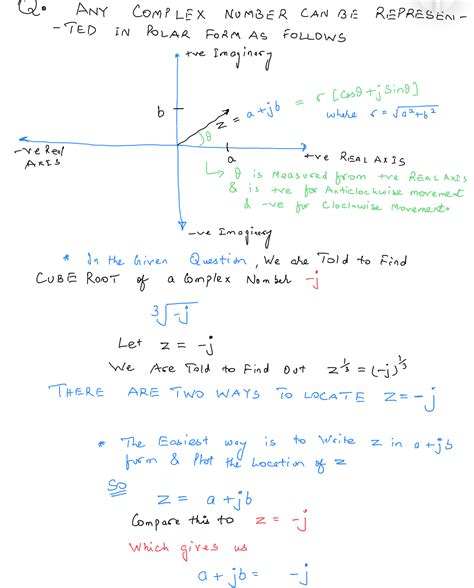 Q. ANY COMPLEX NUMBER CAN BE REPRESEN-
-TED IN POLAR FORM AS FOLLOWS
+ve Imaginary
b
z = a+jb = r [Cosθ+jSinθ]
where r = √a²+b²
θ
-ve Real
AXIS
a
+ve REAL AXIS
θ is Measured from +ve REAL AXIS
& is +ve for Anticlockwise movement
& -ve for Clockwise Movement.
-ve Imaginary
* In the Given Question, We are Told to Find
CUBE ROOT of a Complex Number -j
∛-j
Let z = -j
We Are Told to Find Out z^1/3 = (-j)^1/3
THERE ARE TWO WAYS TO LOCATE Z=-j
* The Easiest way is to Write z in a+jb
form & Plot the Location of z
So
z = a+jb
Compare this to z = -j
Which gives us
a+jb = -j